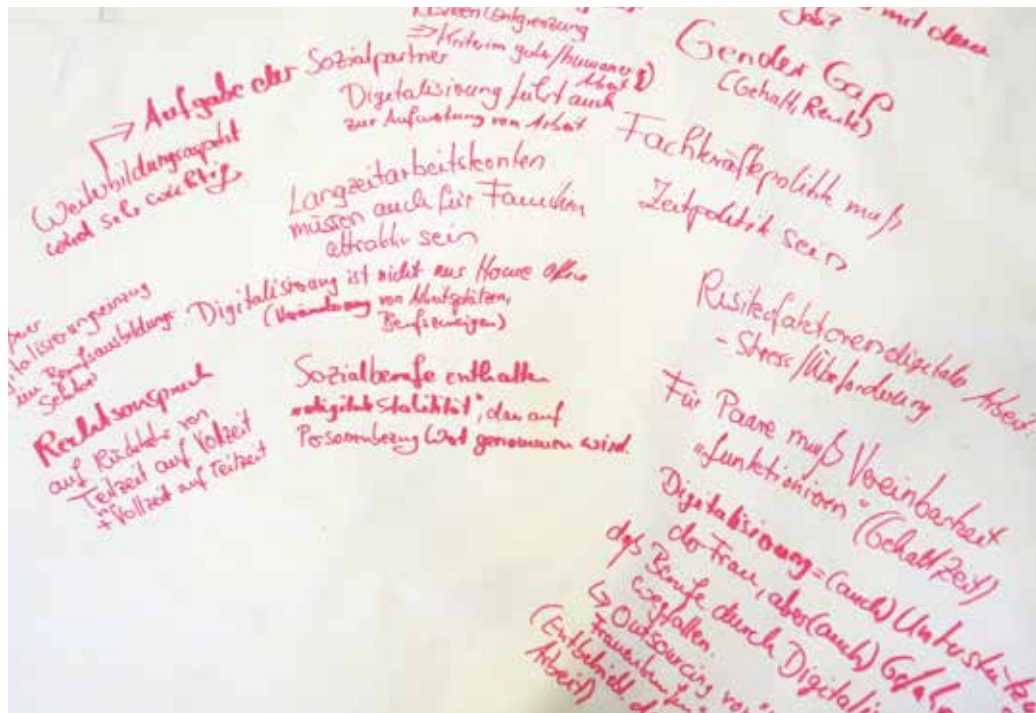 mit dem
Job?
Entgrenzung
⇒ Kriterium gute/humaner
Arbeit
Digitalisierung führt auch
zur Aufwertung von Arbeit
→ Aufgabe der Sozialpartner
Weiterbildungsaspekt
wird sehr wichtig
Langzeitarbeitskonten
müssen auch für Familien
attraktiv sein
Digitalisierung ist nicht nur Home Office
(Veränderung von Arbeitsplätzen,
Berufszweigen)
in Berufsausbildungs-
Rechtsanspruch
auf Rückkehr von
Teilzeit auf Vollzeit
+ Vollzeit auf Teilzeit
Sozialberufe enthalten
der auf
Personenbezug Wert genommen wird.
Gender Gap
(Gehalt, Rente)
Fachkräftepolitik muß
Zeitpolitik sein
Risikofaktoren digitaler Arbeit
- Stress/Überforderung
Für Paare muß Vereinbarkeit
"funktionieren" (Gehalt/Zeit)
Digitalisierung = (auch)
der Frau, aber (auch)
daß Berufe durch
wegfallen
↳ Outsourcing von
Arbeit)